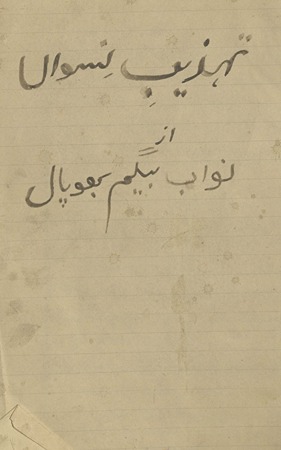 تہذیبِ نِسواں
از
نواب بیگم بھوپال